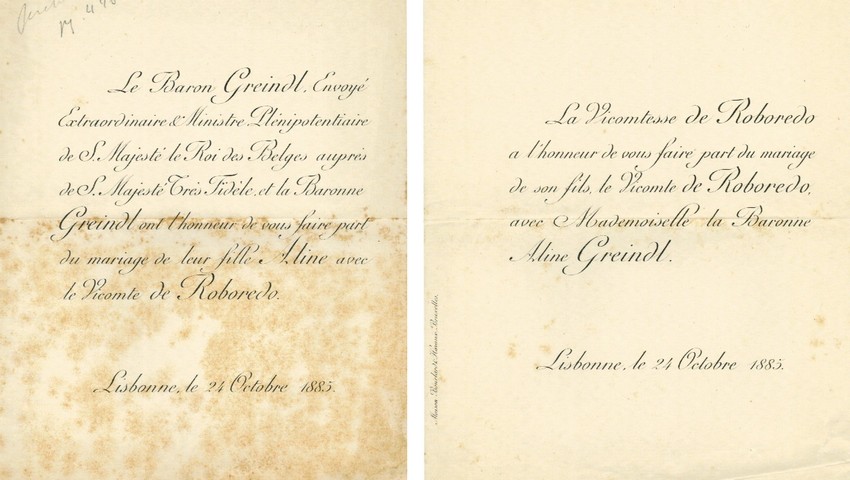 pg. 446
Le Baron Greindl, Envoyé
Extraordinaire & Ministre Plénipotentiaire
de S. Majesté le Roi des Belges auprès
de S. Majesté Très Fidèle, et la Baronne
Greindl ont l'honneur de vous faire part
du mariage de leur fille Aline avec
le Vicomte de Roboredo.
Lisbonne, le 24 Octobre 1885.
La Vicomtesse de Roboredo
a l'honneur de vous faire part du mariage
de son fils, le Vicomte de Roboredo,
avec Mademoiselle la Baronne
Aline Greindl.
Lisbonne, le 24 Octobre 1885.